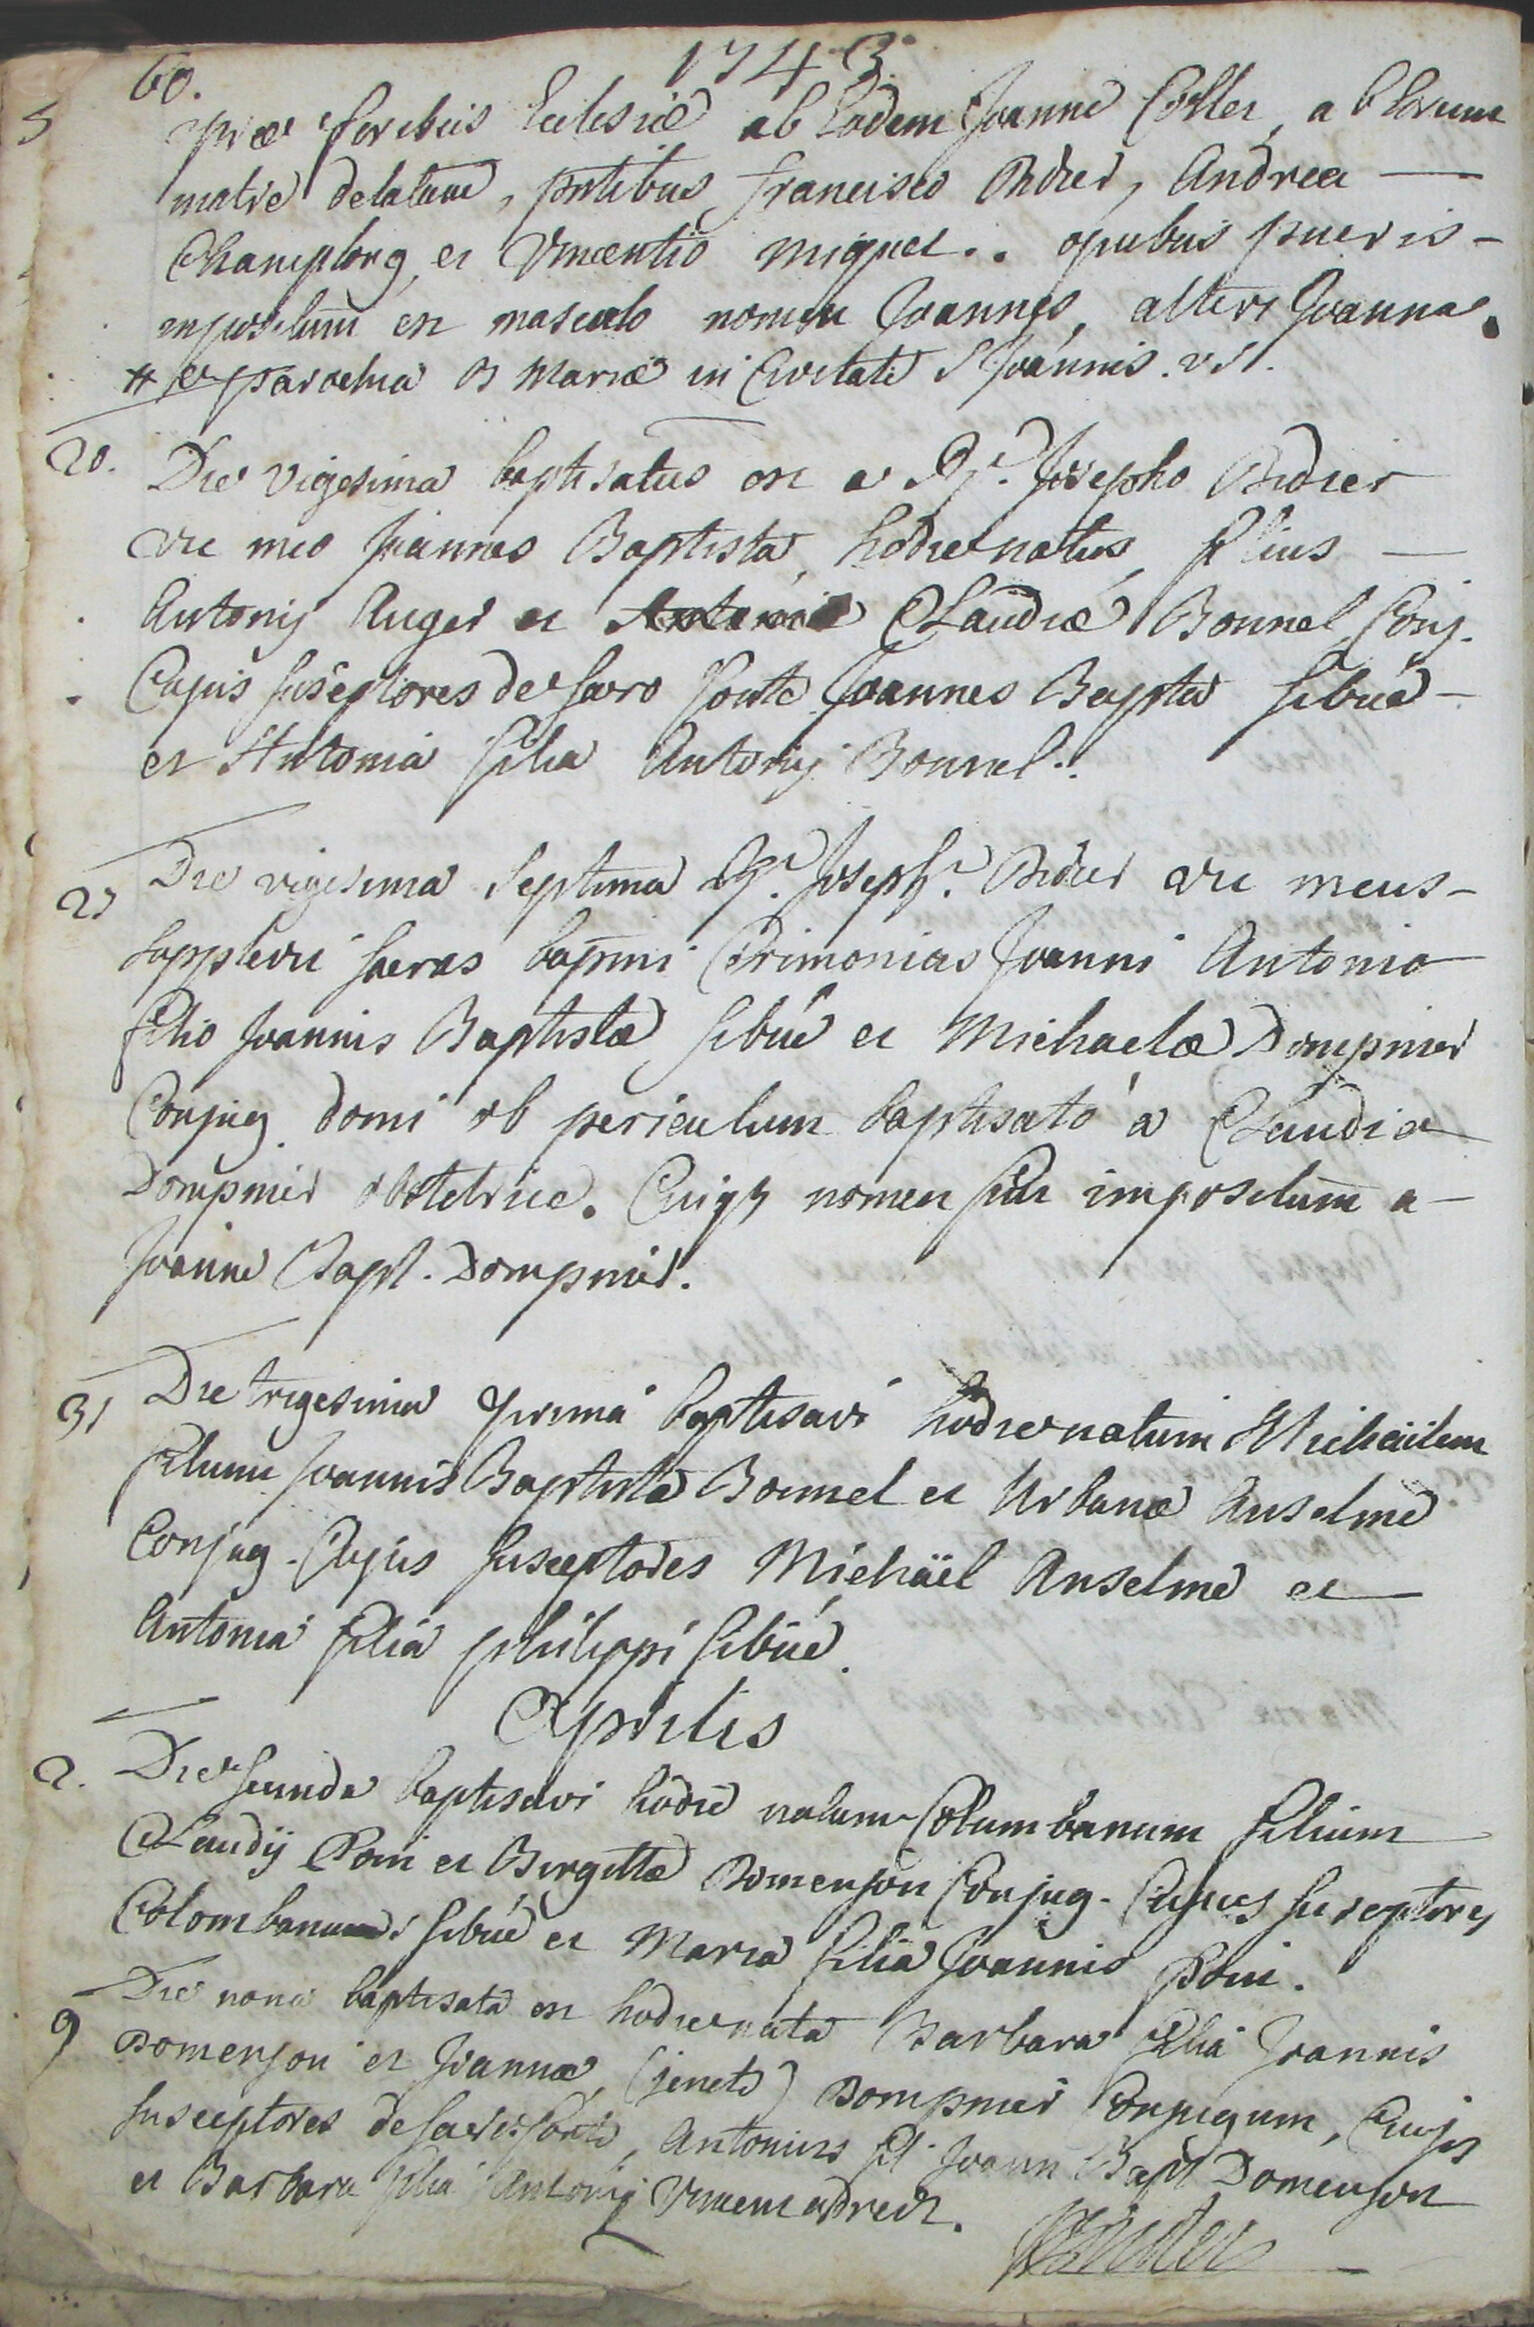 60.
1743
præ foribus Eclesiæ ab Eodem Joanne Coller, ab Earum
matre delatam, pntibus francisco Didier, Andrea —
Champlong, et Vincentio Miquet.. quibus pueris -
impositum est masculo nomen Joannes, alteri Joanna.
# e parochia B Mariæ in Civitate S Joannis.
20. Die vigesima baptisatus est a Rd. Josepho Didier
vic meo Joannes Baptista, hodie natus, filius —
Antonij Auger et Claudiæ Bonnel Conj.
Cujus susceptores de sacro fonte Joannes Bapta sibué -
et Antonia filia Antonij Bonnel..
27 Die vigesima septima Rd. Joseph. Didier vic meus -
supplevit sacras bapmi Cærimonias Joanni Antonio
filio Joannis Baptistæ sibué et Michaelæ Dompnier
Conjug. domi ob periculum baptisato a Claudia
Dompnier obstetrice. Cuiq nomen fuit impositum a -
Joanne Bapt. Dompnier.
31 Die trigesima prima baptisavi hodie natum Michaëlem
filium Joannis Baptistæ Bonnel et Urbanæ Anselme
Conjug. Cujus susceptores Michaël Anselme et —
Antonia filia philippi sibué.
Aprilis
2. Die secunda baptisavi hodie natum Columbanum filium
Claudij Poin et Birgittæ Domenjon Conjug. Cujus susceptores
Colombanus sibué et Maria filia Joannis Poin.
9 Die nona baptisata est hodie nata Barbara filia Joannis
Domenjon et Joannæ (jenete) Dompnier Conjugum, Cujus
susceptores de sacro fonte, Antonius fil. Joann Bapt Domenjon
et Barbara filia Antonij